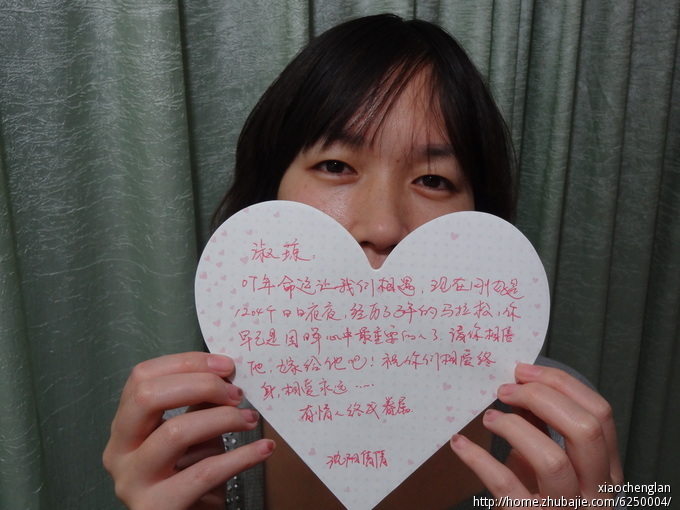 淑辣:
昨年命运让我们相遇,现在回忆是
1204个日日夜夜,经历了3年的马拉松,你
早已是国晖心中最重要的人了.请你相信
他.嫁给他吧!祝你们相爱终
身,相爱永远……
有情人终成眷属
沈阳倩倩
xiaochenglan
http://home.zhubajie.com/6250004/